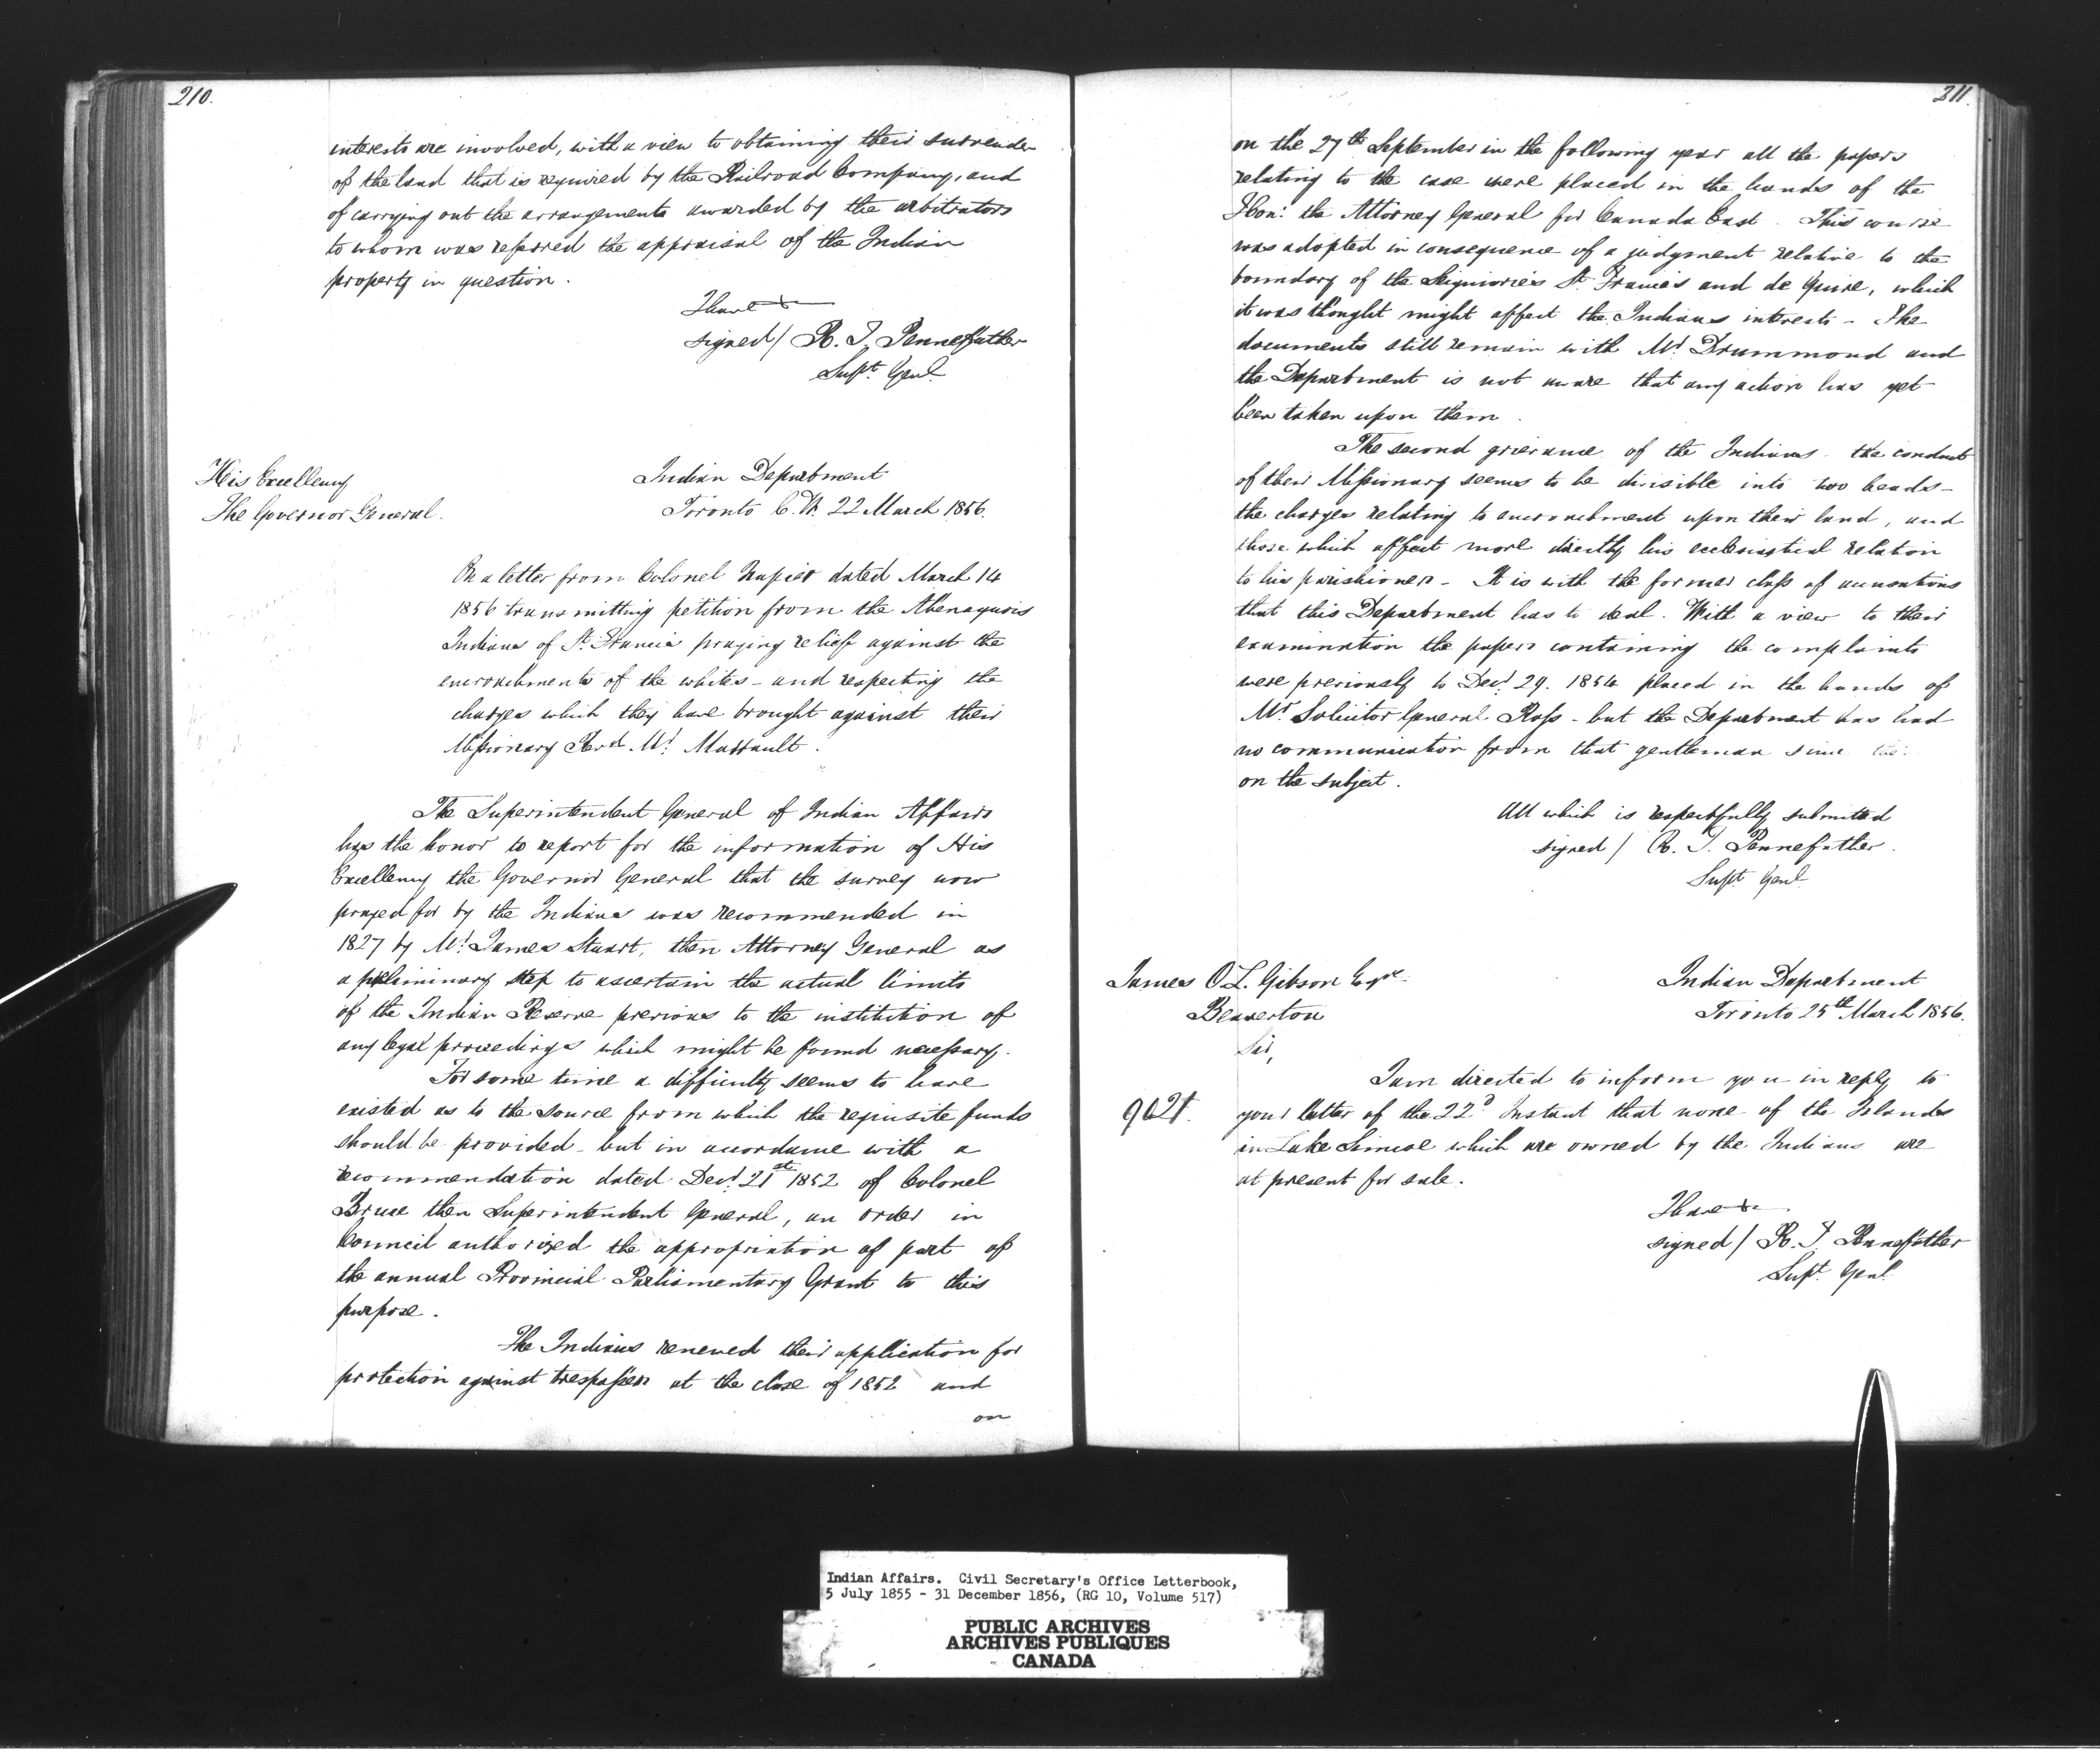 210.
interests are involved, with a view to obtaining their surrender
of the land that is required by the Railroad Company, and
of carrying out the arrangements awarded by the arbitrators
to whom was referred the appraisal of the Indian
property in question.
I have &c
signed / R. T. Pennefather
Supt. Genl.
His Excellency
The Governor General.
Indian Department
Toronto C.W. 22 March 1856.
On a letter from Colonel Napier dated March 14
1856 transmitting petition from the Abenaquois
Indians of St. Francis praying relief against the
encroachments of the whites - and respecting the
charges which they have brought against their
Missionary Revd. Mr. Maurault.
The Superintendent General of Indian Affairs
has the honor to report for the information of His
Excellency the Governor General that the survey now
prayed for by the Indians was recommended in
1827 by Mr. James Stuart, then Attorney General as
a preliminary step to ascertain the actual limits
of the Indian Reserve previous to the institution of
any legal proceedings which might be found necessary.
For some time a difficulty seems to have
existed as to the source from which the requisite funds
should be provided - but in accordance with a
recommendation dated Decr. 21st 1852 of Colonel
Bruce then Superintendent General, an order in
Council authorized the appropriation of part of
the annual Provincial Parliamentary Grant to this
purpose.
The Indians renewed their application for
protection against trespassers at the close of 1852 and
on
211.
on the 27th September in the following year all the papers
relating to the case were placed in the hands of the
Hon: the Attorney General for Canada East. This course
was adopted in consequence of a judgment relative to the
boundary of the Seigniories St. Francis and de Guire, which
it was thought might affect the Indians interests - The
documents still remain with Mr Drummond and
the Department is not aware that any action has yet
been taken upon them.
The second grievance of the Indians - the conduct
of their Missionary seems to be divisible into two heads -
the charges relating to encroachment upon their land, and
those which affect more directly his ecclesiastical relation
to his parishioners - It is with the former class of accusations
that this Department has to deal. With a view to their
examination the papers containing the complaints
were previously to Decr. 29. 1854 placed in the hands of
Mr Solicitor General Ross - but the Department has had
no communication from that gentleman since
on the subject.
All which is respectfully submitted
signed / R. T. Pennefather.
Supt Genl
James O. L. Gibson Esqre.
Beaverton
Indian Department
Toronto 25th March 1856.
Sir,
I am directed to inform you in reply to
9621.
your letter of the 22d Instant that none of the Islands
in Lake Simcoe which are owned by the Indians are
at present for sale.
I have &c.
signed / R. T. Pennefather
Supt. Genl.
Indian Affairs. Civil Secretary's Office Letterbook,
5 July 1855 - 31 December 1856, (RG 10, Volume 517)
PUBLIC ARCHIVES
ARCHIVES PUBLIQUES
CANADA